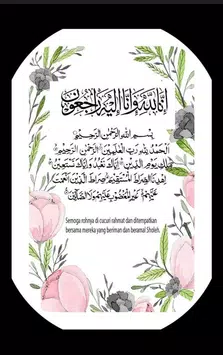 إنا لله وإنا إليه راجعون
بسم الله الرحمن الرحيم
الحمد لله رب العلمين الرحمن الرحيم
ملك يوم الدين إياك نعبد وإياك نستعين
اهدنا الصراط المستقيم صراط الذين أنعمت
عليهم غير المغضوب عليهم ولا الضالين
Semoga rohnya di cucuri rahmat dan ditempatkan
bersama mereka yang beriman dan beramal Sholeh.